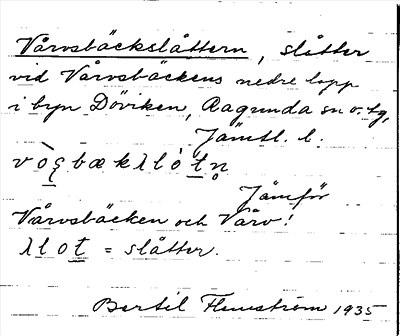 Vårvsbäckslåttern, slåtter
vid Vårvsbäckens nedre lopp
i byn Döviken, Ragunda sn o. tg,
Jämtl. l.
Jämför
Vårvsbäcken och Vårv!
= slåtter.
Bertil Flemström 1935